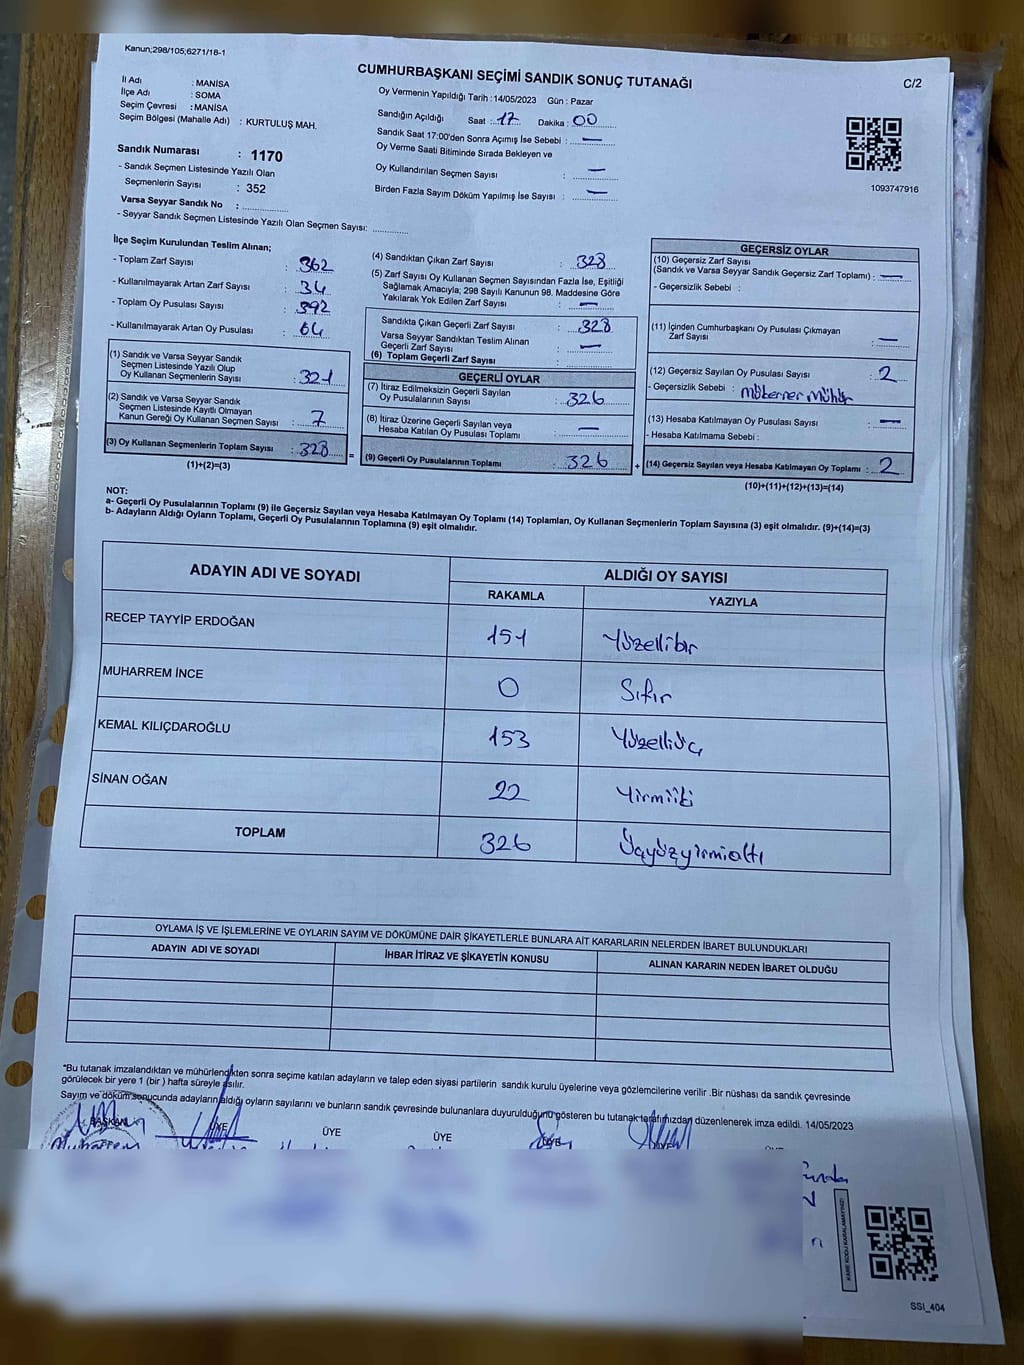 Kanun;298/105;6271/18-1
CUMHURBAŞKANI SEÇİMİ SANDIK SONUÇ TUTANAĞI
C/2
İl Adı : MANİSA
İlçe Adı : SOMA
Seçim Çevresi : MANİSA
Seçim Bölgesi (Mahalle Adı) : KURTULUŞ MAH.
Sandık Numarası : 1170
- Sandık Seçmen Listesinde Yazılı Olan
Seçmenlerin Sayısı : 352
Varsa Seyyar Sandık No : ................
- Seyyar Sandık Seçmen Listesinde Yazılı Olan Seçmen Sayısı: ............
Oy Vermenin Yapıldığı Tarih : 14/05/2023 Gün : Pazar
Sandığın Açıldığı Saat : 17 Dakika : 00
Sandık Saat 17:00'den Sonra Açımış İse Sebebi : —
Oy Verme Saati Bitiminde Sırada Bekleyen ve
Oy Kullandırılan Seçmen Sayısı : —
Birden Fazla Sayım Döküm Yapılmış İse Sayısı : —
1093747916
İlçe Seçim Kurulundan Teslim Alınan;
- Toplam Zarf Sayısı : 362
- Kullanılmayarak Artan Zarf Sayısı : 34
- Toplam Oy Pusulası Sayısı : 392
- Kullanılmayarak Artan Oy Pusulası : 64
(1) Sandık ve Varsa Seyyar Sandık
Seçmen Listesinde Yazılı Olup
Oy Kullanan Seçmenlerin Sayısı : 321
(2) Sandık ve Varsa Seyyar Sandık
Seçmen Listesinde Kayıtlı Olmayan
Kanun Gereği Oy Kullanan Seçmen Sayısı : 7
(3) Oy Kullanan Seçmenlerin Toplam Sayısı : 328 =
(1)+(2)=(3)
(4) Sandıktan Çıkan Zarf Sayısı : 328
(5) Zarf Sayısı Oy Kullanan Seçmen Sayısından Fazla İse, Eşitliği
Sağlamak Amacıyla; 298 Sayılı Kanunun 98. Maddesine Göre
Yakılarak Yok Edilen Zarf Sayısı : —
Sandıkta Çıkan Geçerli Zarf Sayısı : 328
Varsa Seyyar Sandıktan Teslim Alınan
Geçerli Zarf Sayısı : —
(6) Toplam Geçerli Zarf Sayısı
GEÇERLİ OYLAR
(7) İtiraz Edilmeksizin Geçerli Sayılan
Oy Pusulalarının Sayısı : 326
(8) İtiraz Üzerine Geçerli Sayılan veya
Hesaba Katılan Oy Pusulası Toplamı : —
(9) Geçerli Oy Pusulalarının Toplamı : 326 +
GEÇERSİZ OYLAR
(10) Geçersiz Zarf Sayısı
(Sandık ve Varsa Seyyar Sandık Geçersiz Zarf Toplamı) : —
- Geçersizlik Sebebi :
(11) İçinden Cumhurbaşkanı Oy Pusulası Çıkmayan
Zarf Sayısı : —
(12) Geçersiz Sayılan Oy Pusulası Sayısı : 2
- Geçersizlik Sebebi : Mükerrer Mühür
(13) Hesaba Katılmayan Oy Pusulası Sayısı : —
- Hesaba Katılmama Sebebi :
(14) Geçersiz Sayılan veya Hesaba Katılmayan Oy Toplamı : 2
(10)+(11)+(12)+(13)=(14)
NOT:
a- Geçerli Oy Pusulalarının Toplamı (9) ile Geçersiz Sayılan veya Hesaba Katılmayan Oy Toplamı (14) Toplamları, Oy Kullanan Seçmenlerin Toplam Sayısına (3) eşit olmalıdır. (9)+(14)=(3)
b- Adayların Aldığı Oyların Toplamı, Geçerli Oy Pusulalarının Toplamına (9) eşit olmalıdır.
ADAYIN ADI VE SOYADI ALDIĞI OY SAYISI
RAKAMLA YAZIYLA
RECEP TAYYİP ERDOĞAN 151 Yüzellibir
MUHARREM İNCE 0 Sıfır
KEMAL KILIÇDAROĞLU 153 Yüzelliüç
SİNAN OĞAN 22 Yirmiiki
TOPLAM 326 Üçyüzyirmialtı
OYLAMA İŞ VE İŞLEMLERİNE VE OYLARIN SAYIM VE DÖKÜMÜNE DAİR ŞİKAYETLERLE BUNLARA AİT KARARLARIN NELERDEN İBARET BULUNDUKLARI
ADAYIN ADI VE SOYADI İHBAR İTİRAZ VE ŞİKAYETİN KONUSU ALINAN KARARIN NEDEN İBARET OLDUĞU
*Bu tutanak imzalandıktan ve mühürlendikten sonra seçime katılan adayların ve talep eden siyasi partilerin sandık kurulu üyelerine veya gözlemcilerine verilir .Bir nüshası da sandık çevresinde
görülecek bir yere 1 (bir ) hafta süreyle asılır.
Sayım ve döküm sonucunda adayların aldığı oyların sayılarını ve bunların sandık çevresinde bulunanlara duyurulduğunu gösteren bu tutanak tarafımızdan düzenlenerek imza edildi. 14/05/2023
BAŞKAN ÜYE ÜYE ÜYE ÜYE ÜYE ÜYE
Muharrem
KARE KODU KARALAMAYINIZ!
SSI_404